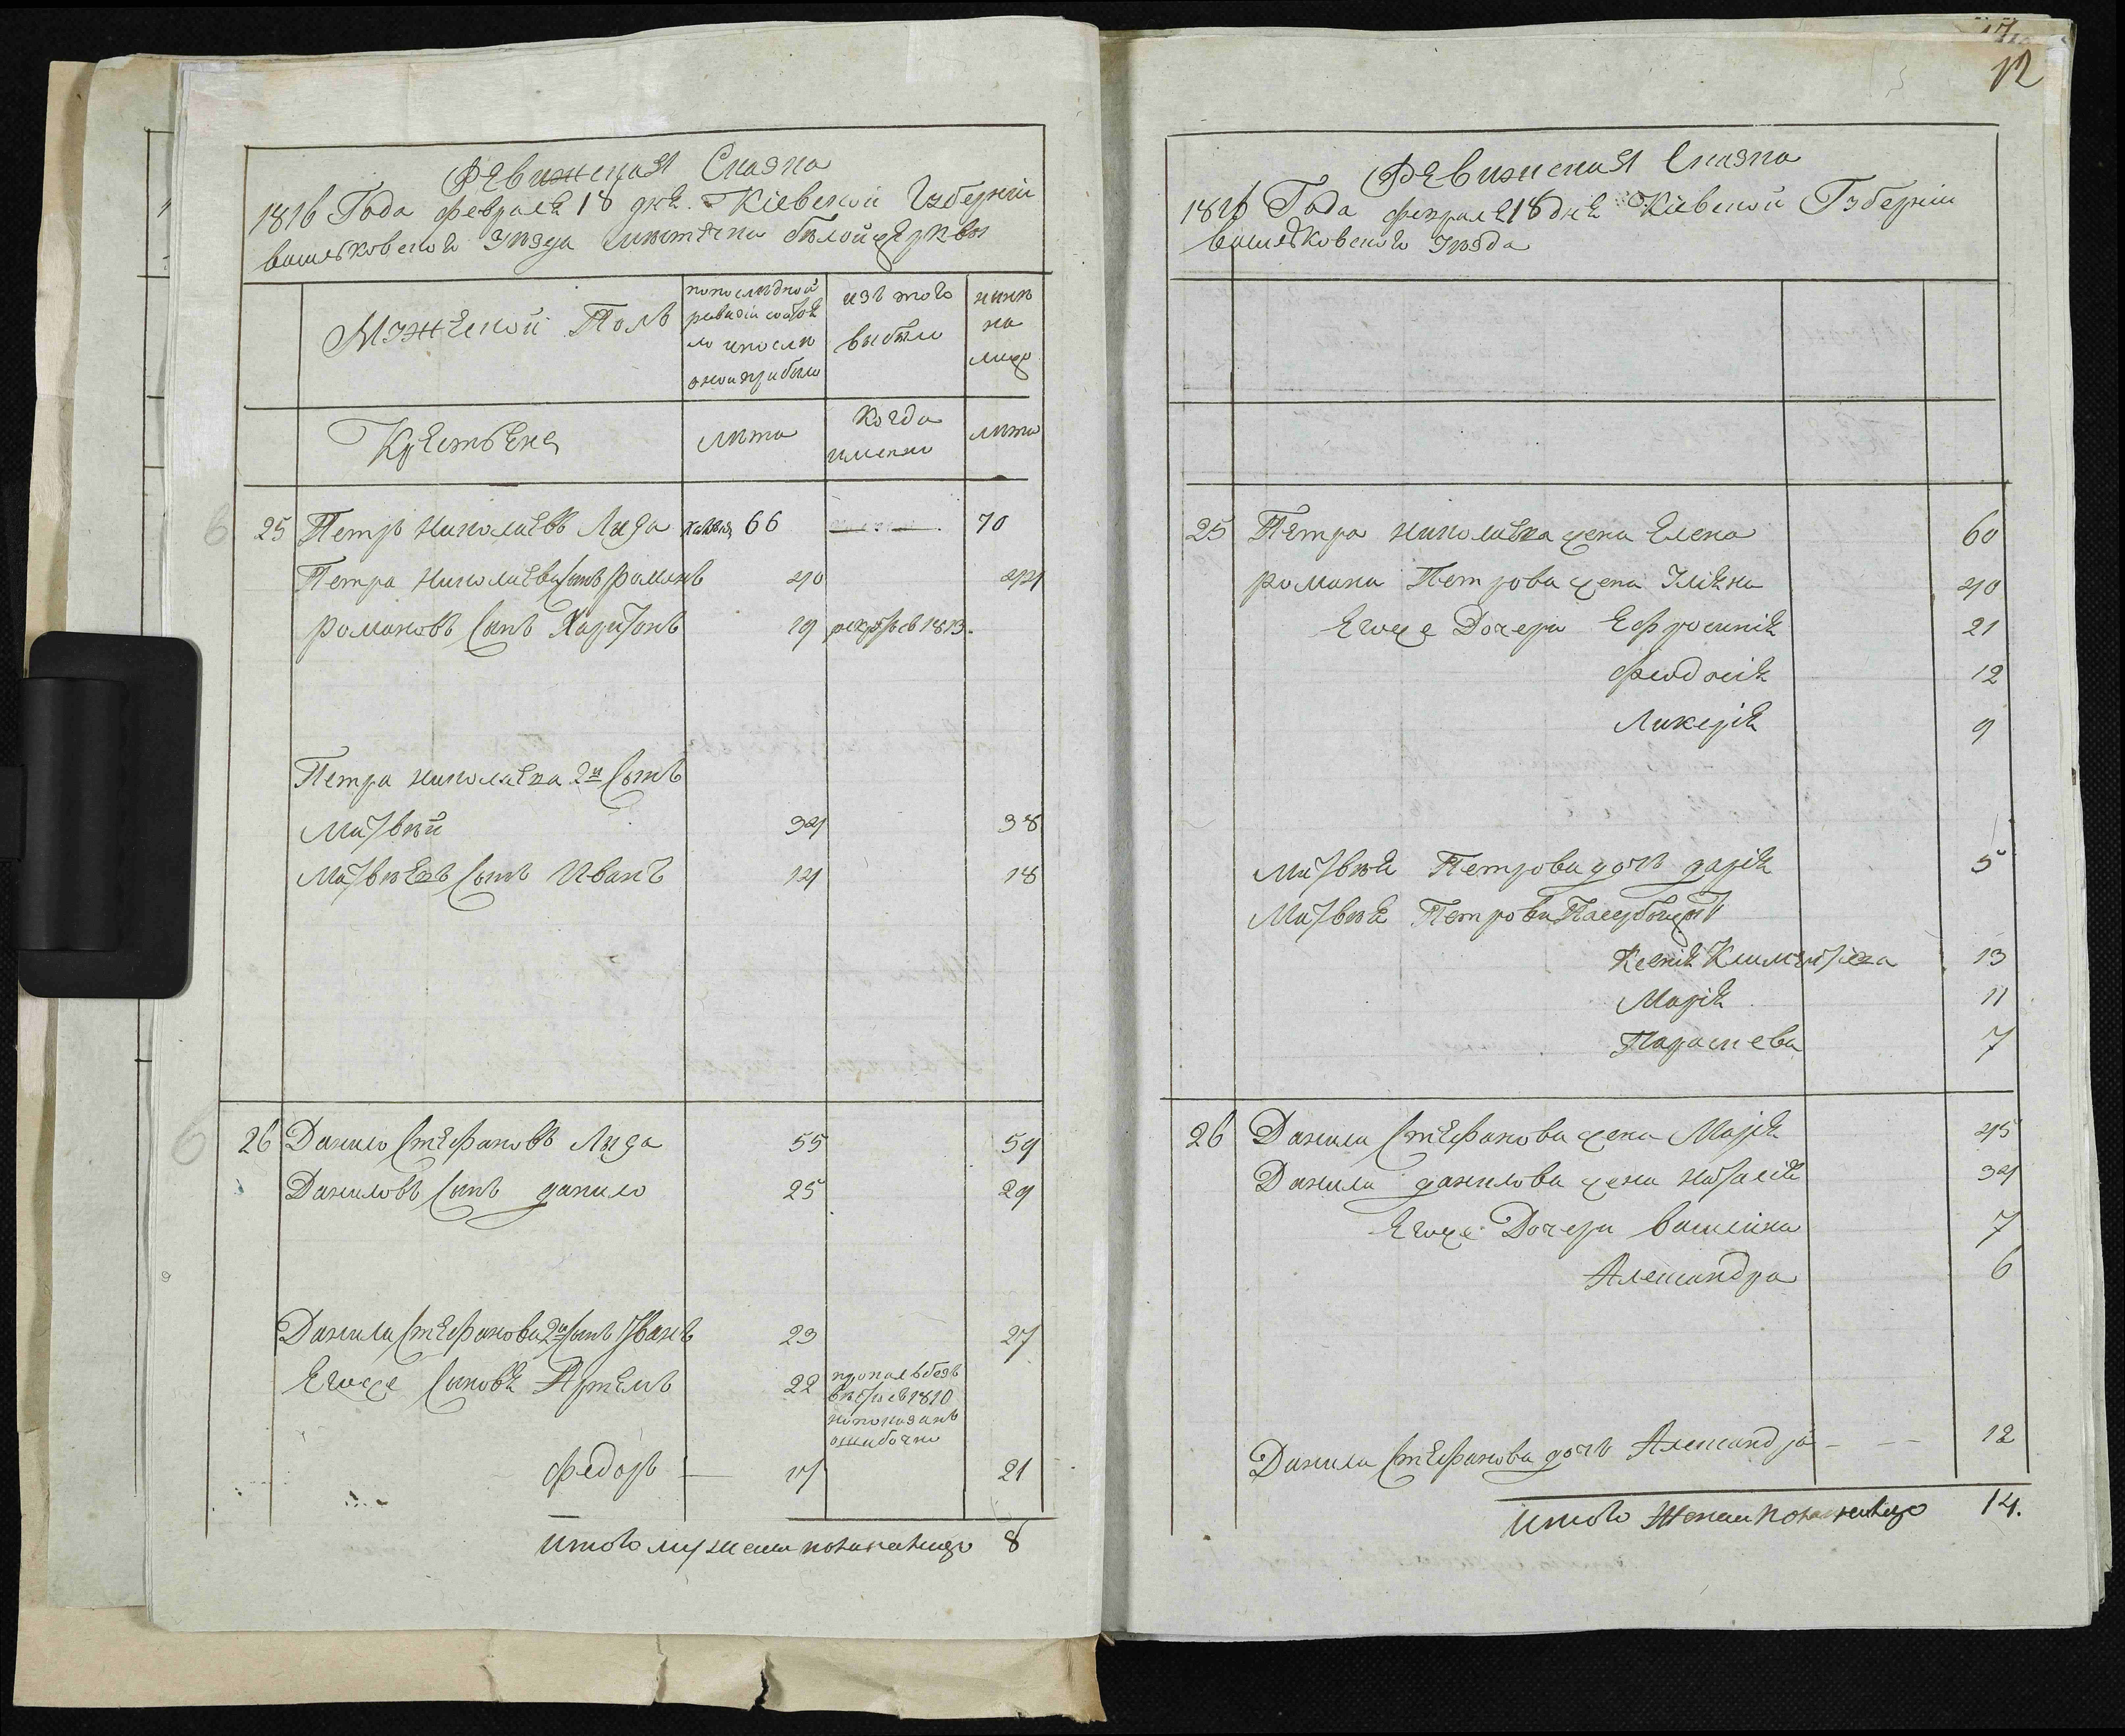 Ревижская Сказка
1816 Года февраля 18 дня Кіевской Губерніи
васильковского уезда мястечка белойцеркви
Мужеской Полъ
по последной
ревизіи состоя
ло и после
оной прибыло
изъ того
выбыли
ныне
на
лицо
Крестьяне
лета
Когда
именно
лета
25 Петръ николаевъ Лиза 66 — . — . 70
Петра николаева Сынъ романъ 40 44
романовъ Сынъ Харитонъ 19 рекрутъ въ 1813.
Петра николаева 2й Сынъ
Матвей 34 38
Матвеевъ Сынъ Иванъ 14 18
26 Данило Стефановъ Лиза 55 59
Даниловъ Сынъ данило 25 29
Данила Стефанова 2й Сынъ Иванъ 23 27
Егоже Сыновя Артемъ 22
пропалъ безъ
вести въ 1810
непоказанъ
ошибочно
федоръ — 17 21
Итого мужеска поланалицо 8
12
Ревижская Сказка
1816 Года февраля 18 дня Кіевской Губерніи
васильковского уезда
25 Петра николаева жена Елена 60
романа Петрова жена Уліяна 40
Егоже Дочери Ефросинія 21
феодосія 12
Ликерія 9
Матвея Петрова дочь дарія 5
Матвея Петрова
Ксенія 13
Марія 11
Параскева 7
26 Данила Стефанова жена Марія 45
Данила данилова жена наталія 34
Егоже Дочери василина 7
Александра 6
Данила Стефанова дочь Александра — — 12
Итого Женска пола налицо 14.